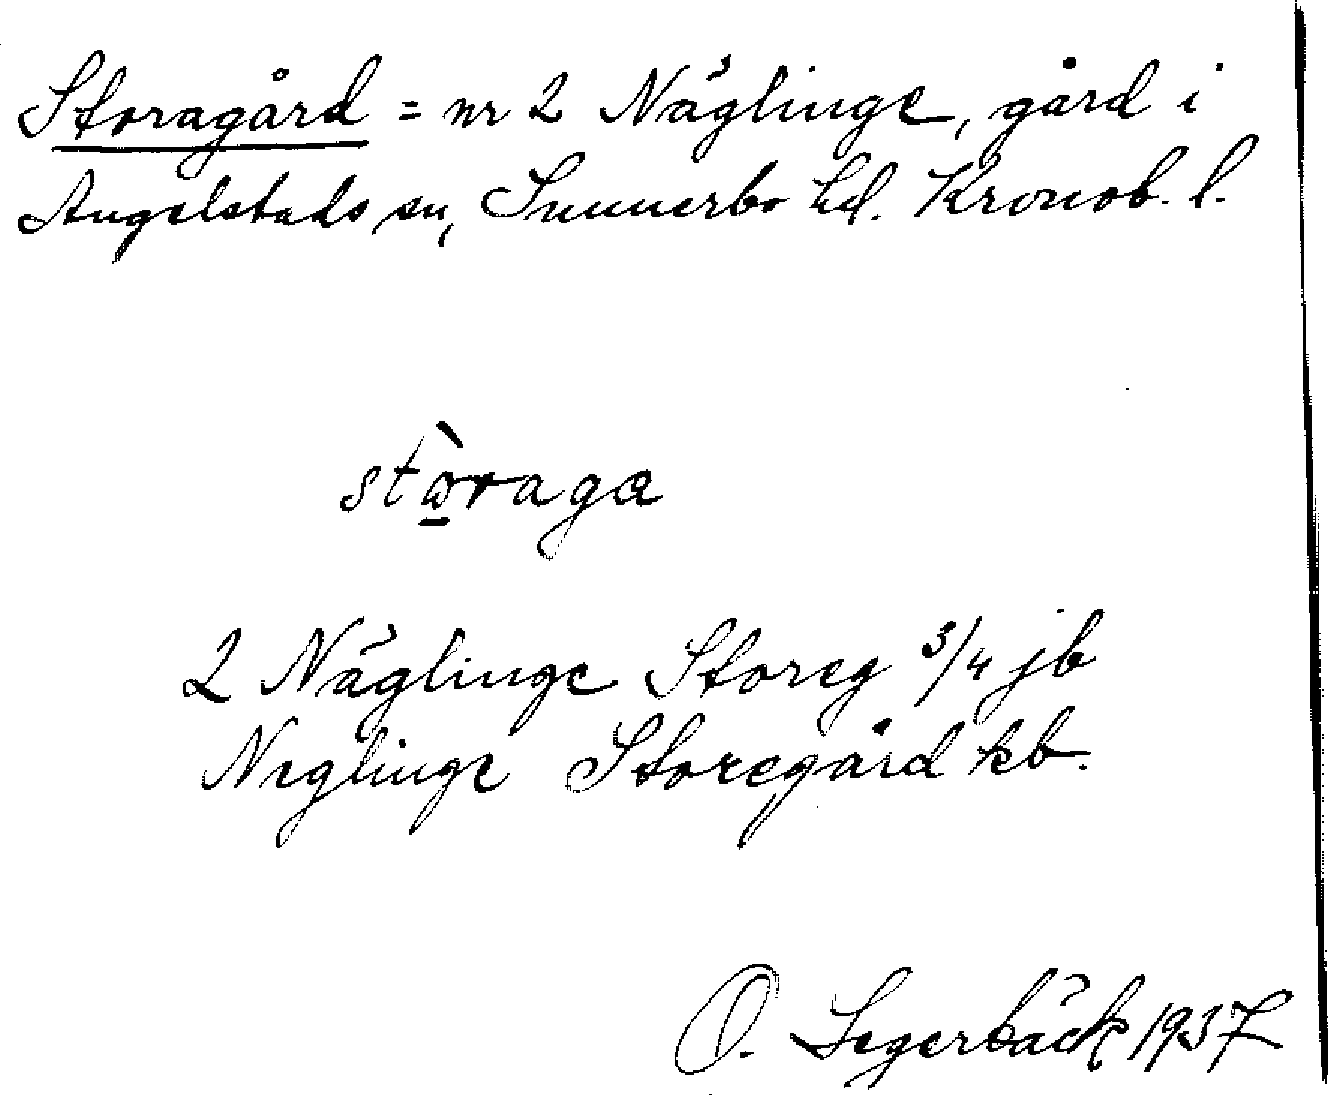 Storagård = nr 2 Näglinge, gård i
Angelstads sn, Sunnerbo hd. Kronob. l.
stòraga
2 Näglinge Storeg 3/4 jb
Neglinge Storegård kb.
O. Segerbäck 1937